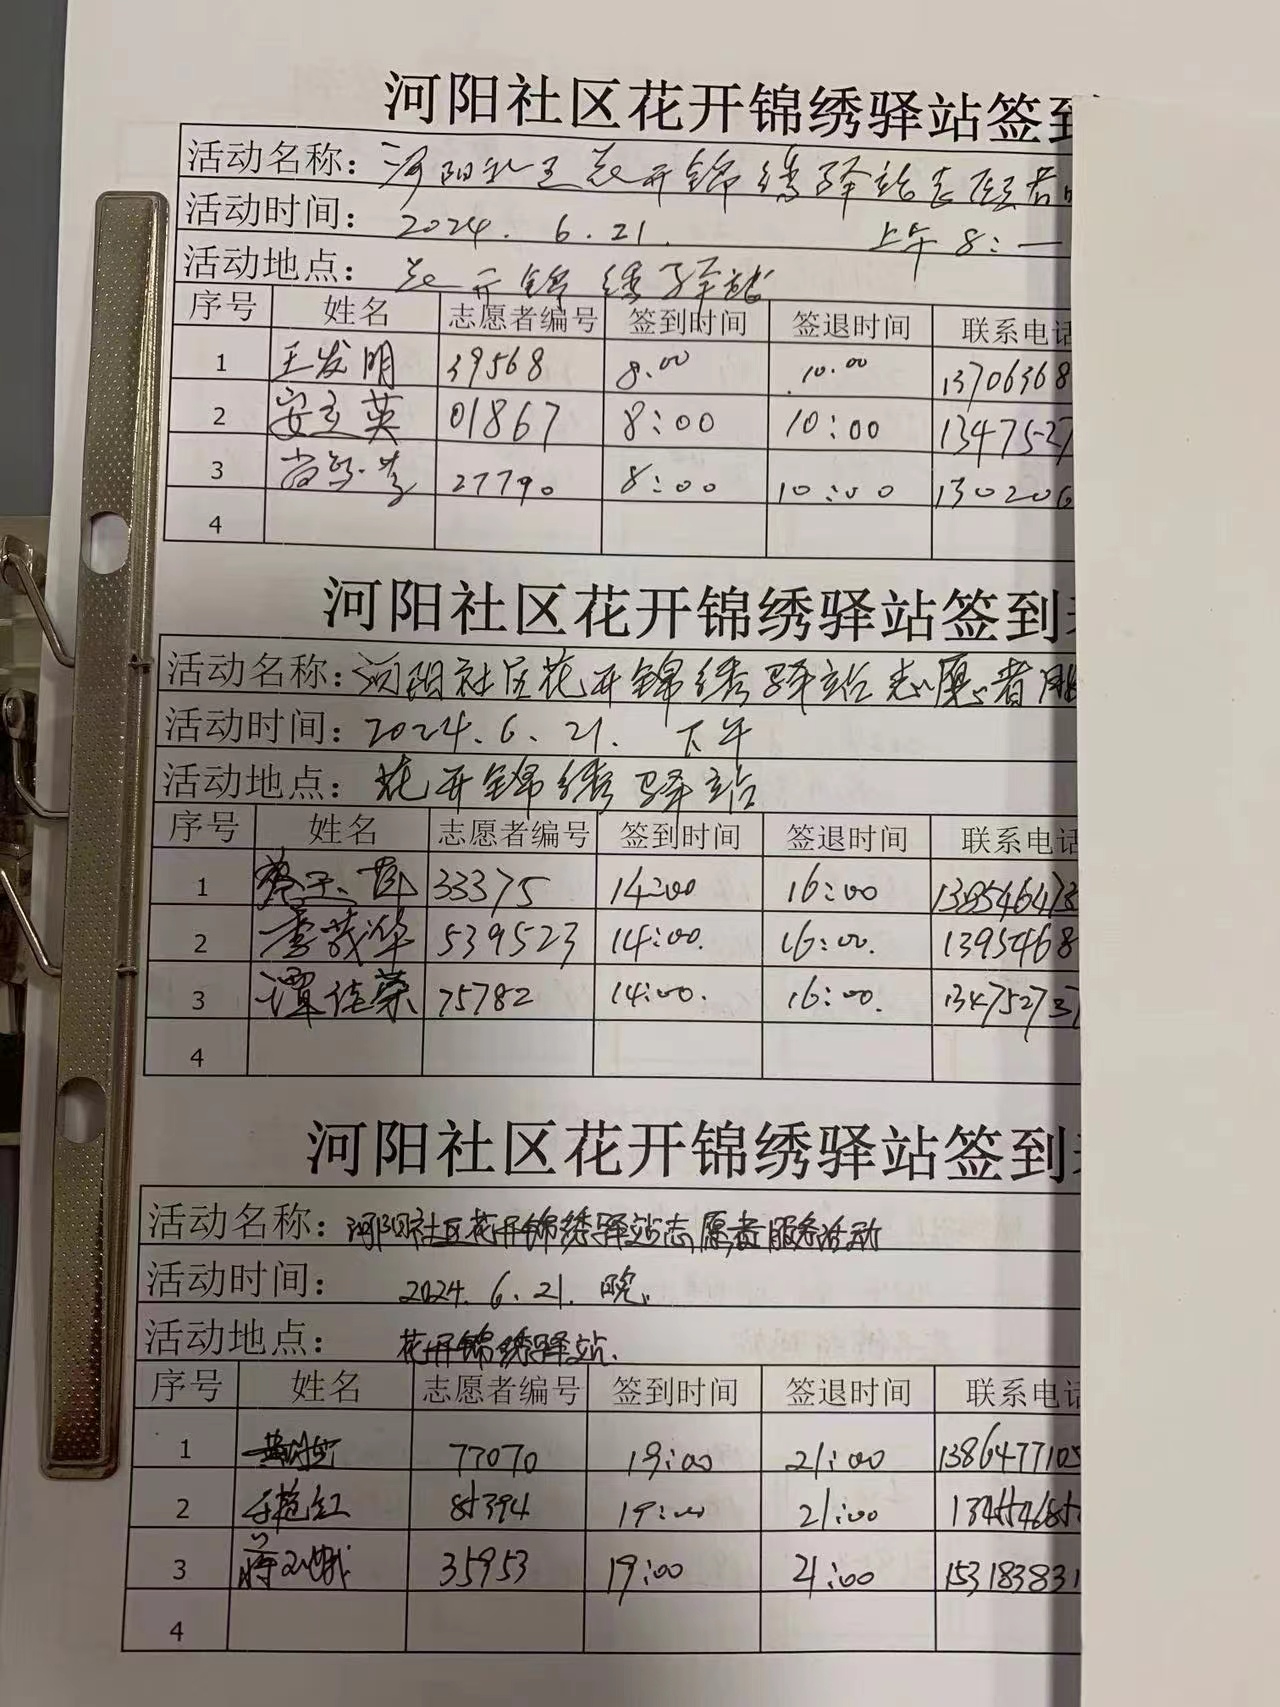 河阳社区花开锦绣驿站签到
活动名称：河阳社区花开锦绣驿站志愿者
活动时间：2024.6.21. 上午8:一
活动地点：花开锦绣驿站
序号 姓名 志愿者编号 签到时间 签退时间 联系电话
1 王发明 39568 8:00 10:00 13706368
2 安立英 01867 8:00 10:00 1347527
3 27790 8:00 10:00 130206
4
河阳社区花开锦绣驿站签到
活动名称：河阳社区花开锦绣驿站志愿者服
活动时间：2024.6.21. 下午
活动地点：花开锦绣驿站
序号 姓名 志愿者编号 签到时间 签退时间 联系电话
1 33375 14:00 16:00 138546473
2 李茂华 539523 14:00. 16:00. 1395468
3 谭佳荣 75782 14:00. 16:00. 134752737
4
河阳社区花开锦绣驿站签到
活动名称：河阳社区花开锦绣驿站志愿者服务活动
活动时间：2024.6.21.晚.
活动地点：花开锦绣驿站.
序号 姓名 志愿者编号 签到时间 签退时间 联系电话
1 77070 19:00 21:00 1386477105
2 85394 19:00 21:00
3 35953 19:00 21:00 153183831
4